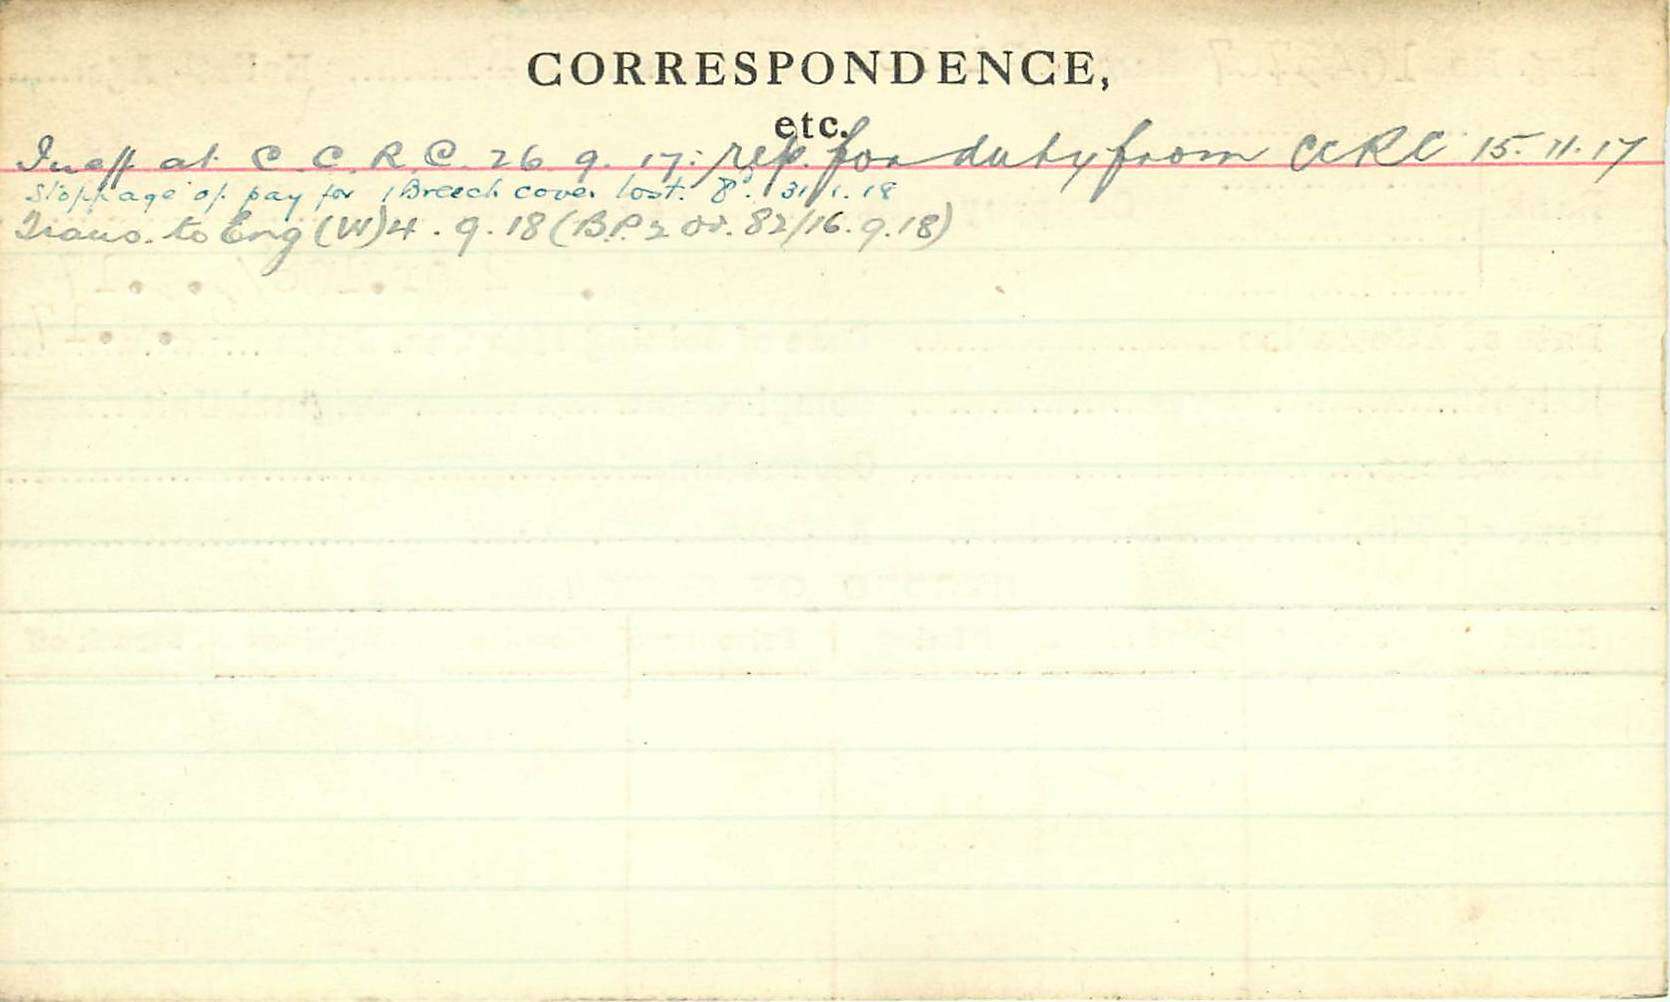 CORRESPONDENCE,
etc.
Ineff at. C. C. R. C. 26. 9. 17: rep. for duty from CCRC 15. 11. 17
Stoppage of pay for 1 Breech cover lost. 8d. 31/1. 18
Trans. to Eng (W) 4. 9. 18 (B.P. 2 Or. 82/16. 9. 18)